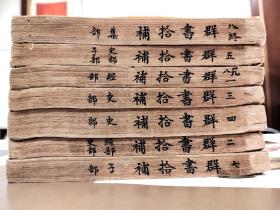 八終 群書拾補 集部
五 群書拾補 史部子部
一凡八 群書拾補 經部
三 群書拾補 史部
四 群書拾補 史部
二 群書拾補 經部史部
七 群書拾補 子部